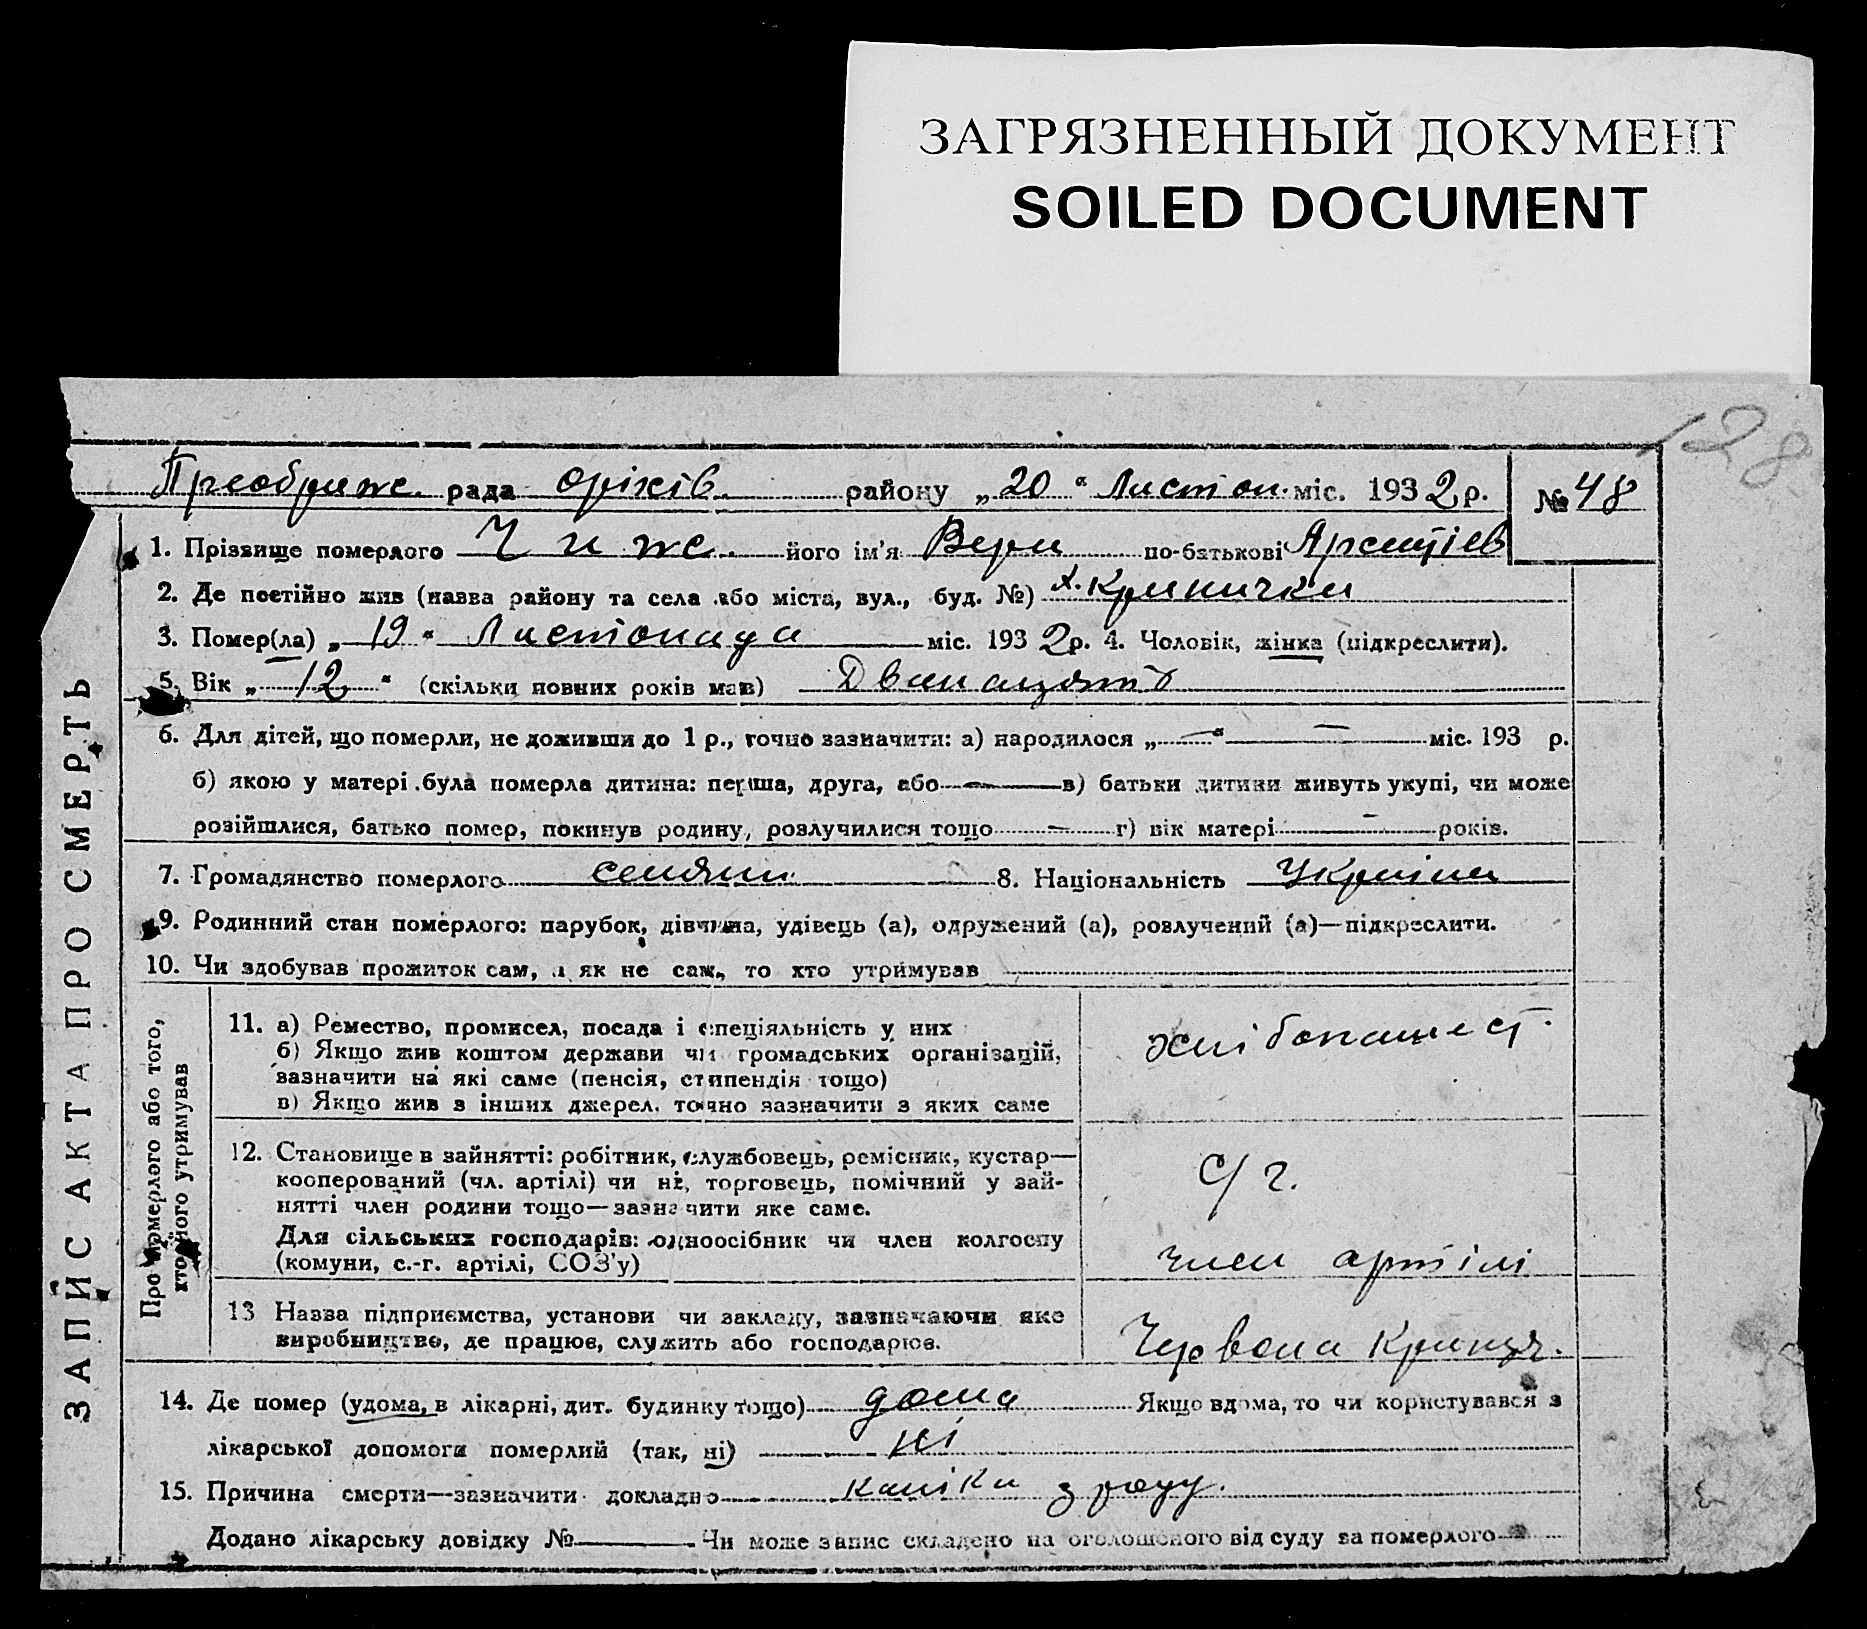 ЗАГРЯЗНЕННЫЙ ДОКУМЕНТ
SOILED DOCUMENT
128
Преображ. рада Оріхів. району „20“ Листоп. міс. 1932 р. № 48
ЗАПИС АКТА ПРО СМЕРТЬ
1. Прізвище померлого Чиж. його ім'я Вера по-батькові
2. Де постійно жив (назва району та села або міста, вул., буд. №) х. Кринички
3. Помер(ла) „19“ Листопада міс. 1932 р. 4. Чоловік, жінка (підкреслити).
5. Вік „12“ (скільки повних років мав) Дванацять
6. Для дітей, що померли, не доживши до 1 р., точно зазначити: а) народилося „—“ — міс. 193 р.
б) якою у матері була померла дитина: перша, друга, або — в) батьки дитини живуть укупі, чи може
розійшлися, батько помер, покинув родину, розлучилися тощо — г) вік матері — років.
7. Громадянство померлого селянин. 8. Національність Україн
9. Родинний стан померлого: парубок, дівчина, удівець (а), одружений (а), розлучений (а)—підкреслити.
10. Чи здобував прожиток сам, а як не сам, то хто утримував
Про померлого або того, хто його утримував
11. а) Ремество, промисел, посада і спеціяльність у них
б) Якщо жив коштом держави чи громадських організацій,
зазначити на які саме (пенсія, стипендія тощо)
в) Якщо жив з інших джерел, точно зазначити з яких саме
12. Становище в зайнятті: робітник, службовець, ремісник, кустар—
кооперований (чл. артілі) чи ні, торговець, помічний у зай-
нятті член родини тощо—зазначити яке саме.
С/г.
Для сільських господарів: одноосібник чи член колгоспу
(комуни, с.-г. артілі, СОЗ'у)
член артілі
13 Назва підприємства, установи чи закладу, зазначаючи яке
виробництво, де працює, служить або господарює.
Червона Криниця.
14. Де помер (удома, в лікарні, дит. будинку тощо) дома Якщо вдома, то чи користувався з
лікарської допомоги померлий (так, ні) ні
15. Причина смерти—зазначити докладно каліка з роду.
Додано лікарську довідку № Чи може запис складено на оголошеного від суду за померлого